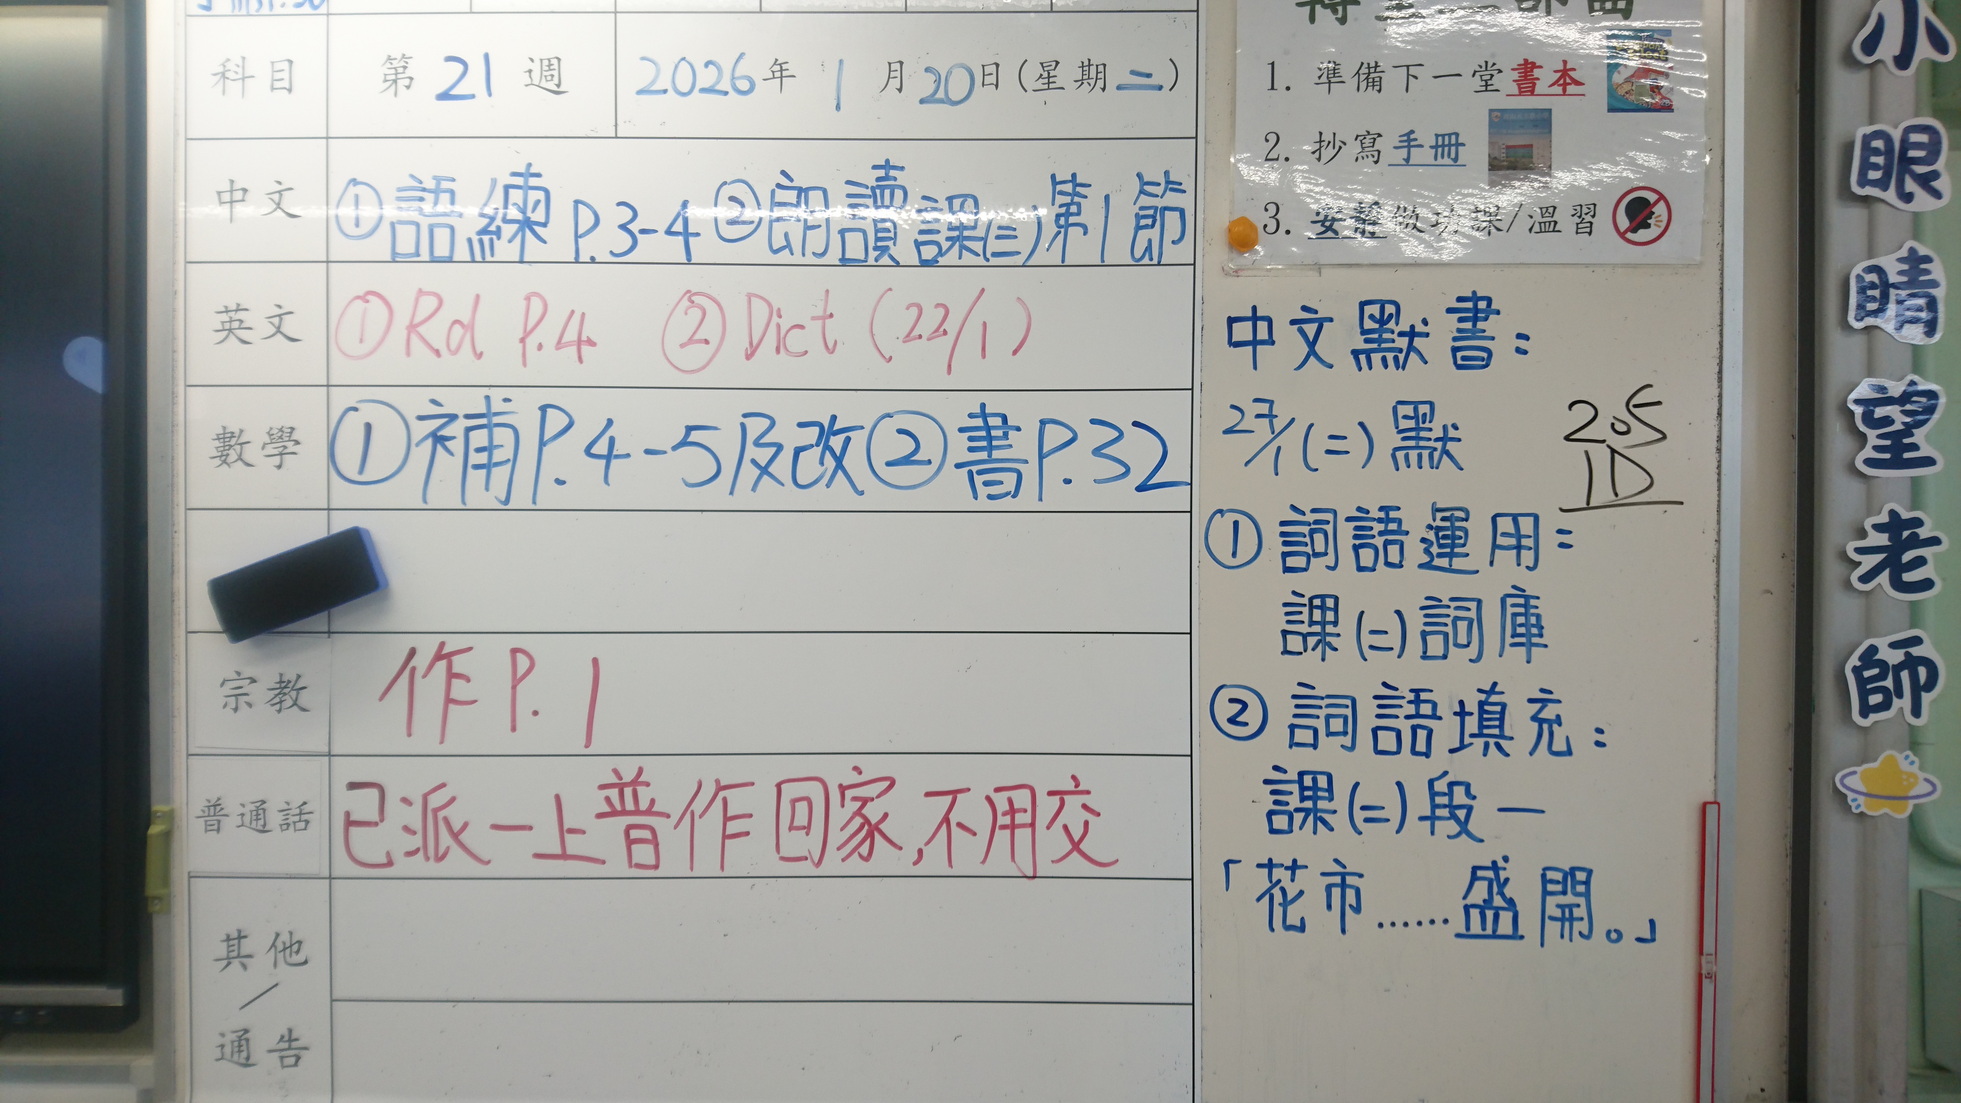 科目 第 21 週 2026年 1 月 20日(星期二)
中文 ①語練 P.3-4 ②朗讀課(三)第1節
英文 ①Rd P.4 ②Dict (22/1)
數學 ①補P.4-5及改②書P.32
宗教 作 P.1
普通話 已派一上普作回家,不用交
其他
/
通告
1. 準備下一堂書本
2. 抄寫手冊
3. 安靜做功課/溫習
中文默書:
27/1(二)默
①詞語運用:
課(二)詞庫
②詞語填充:
課(二)段一
「花市......盛開。」
2.5
1D
小眼睛望老師